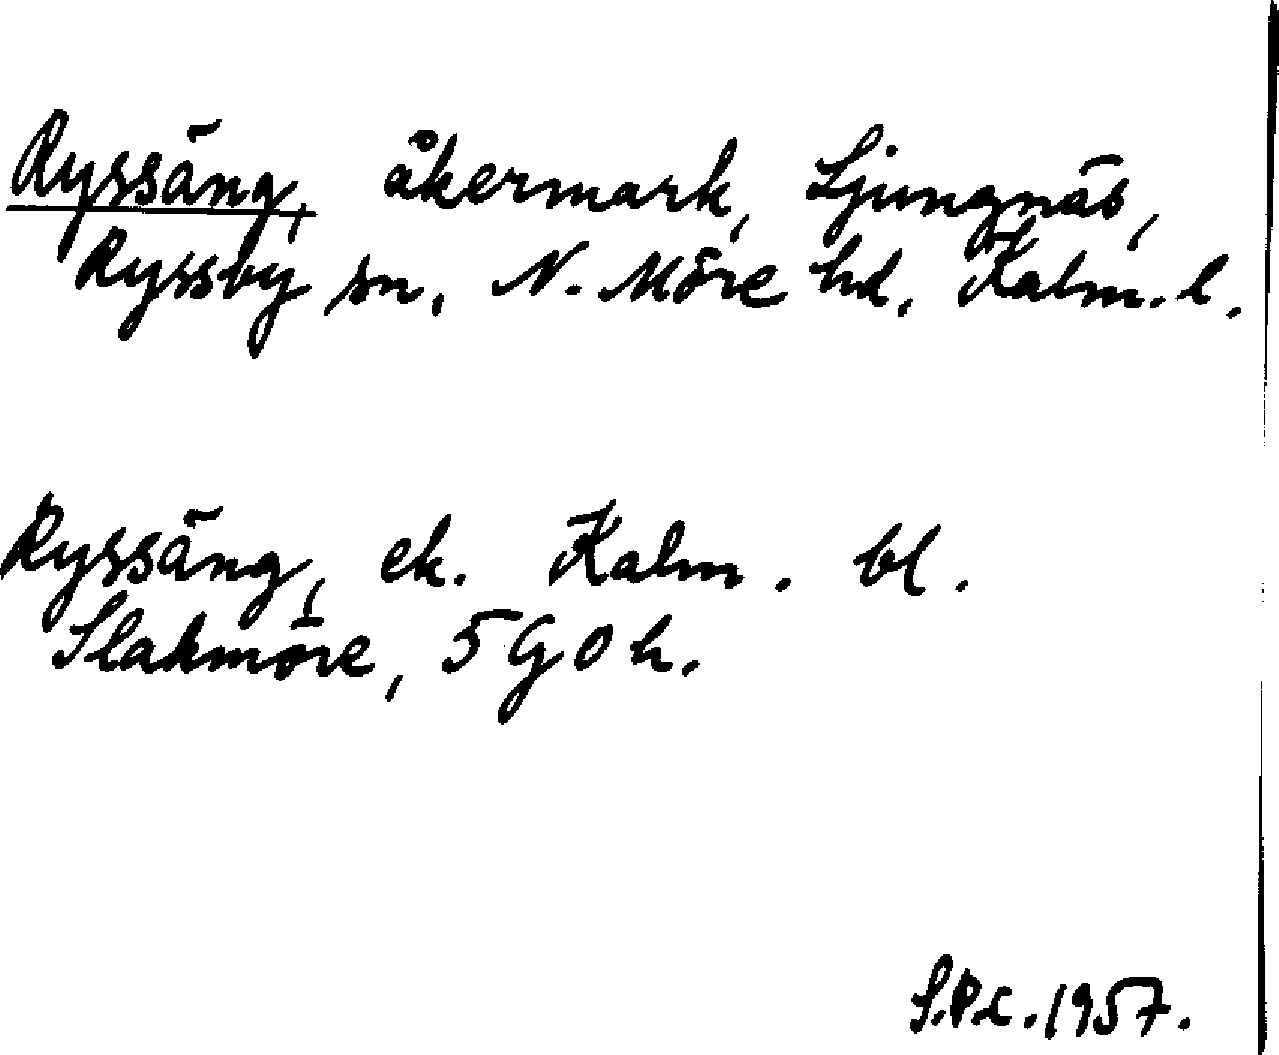 Ryssäng, åkermark, Ljungnäs,
Ryssby sn, N. Möre hd, Kalm. l.
Ryssäng, ek. Kalm. bl.
Slakmöre, 5 G O h.
1957.